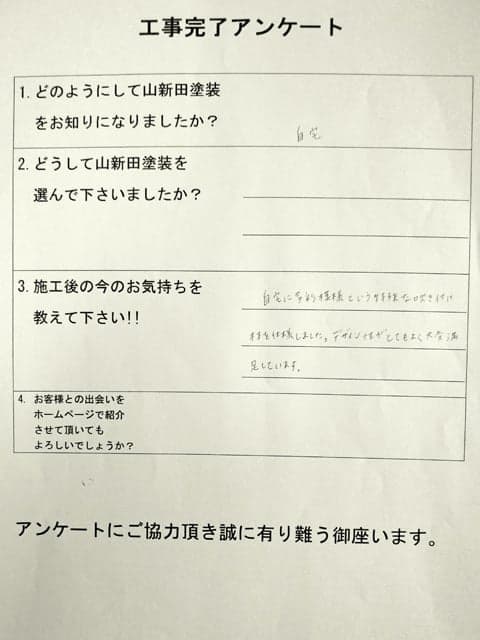 工事完了アンケート
1. どのようにして山新田塗装
をお知りになりましたか？
自宅
2. どうして山新田塗装を
選んで下さいましたか？
3. 施工後の今のお気持ちを
教えて下さい!!
自宅に多彩模様という特殊な吹き付け
材を仕様しました。デザイン性がとてもよく大変満
足しています。
4. お客様との出会いを
ホームページで紹介
させて頂いても
よろしいでしょうか？
アンケートにご協力頂き誠に有り難う御座います。